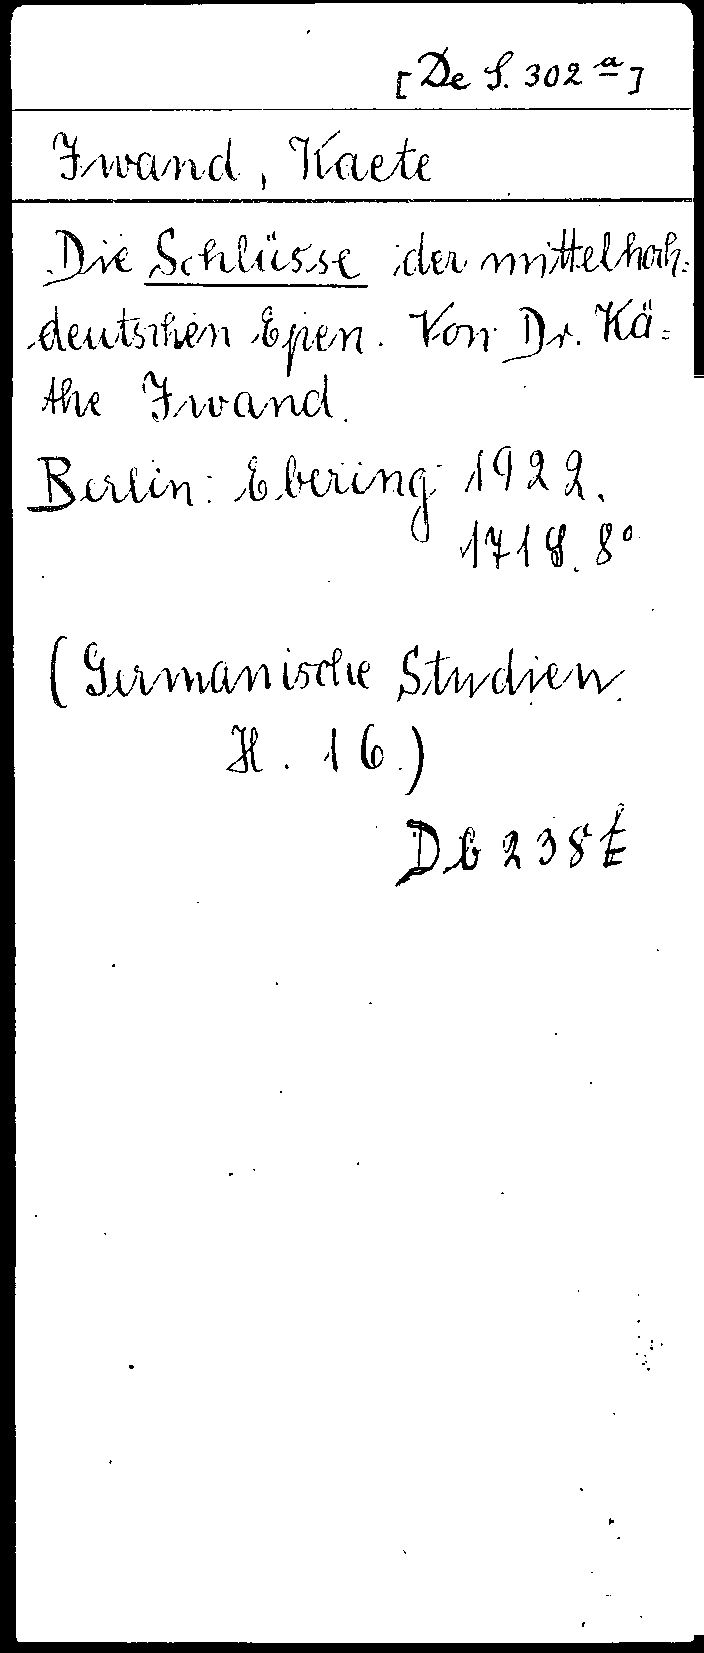 [De S. 302 a]
Iwand, Kaete
Die Schlüsse der mittelhoch=
deutschen Epen. Von Dr. Kä=
the Iwand.
Berlin: Ebering 1922.
171 S. 8°
(Germanische Studien
H. 16.)
Db 238 t